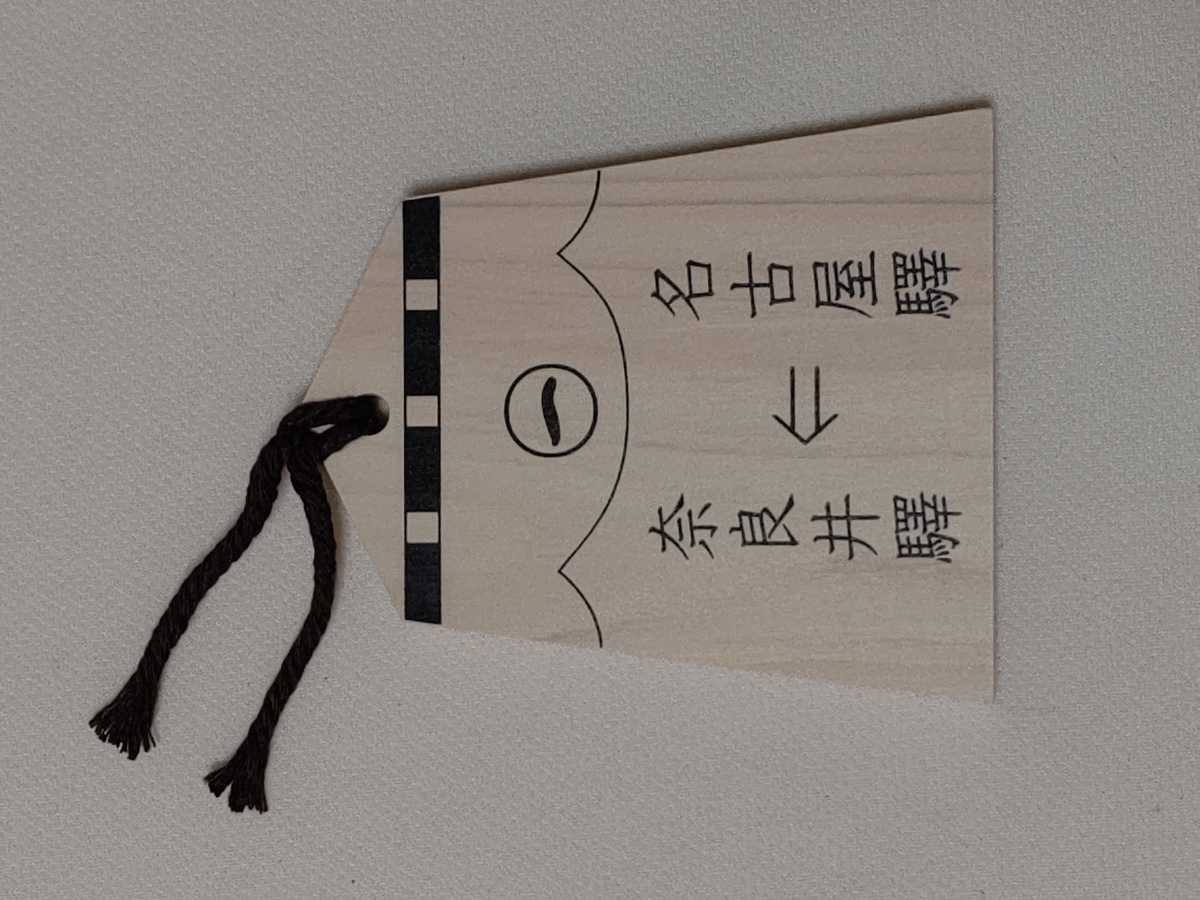 一
名古屋驛
⇐
奈良井驛